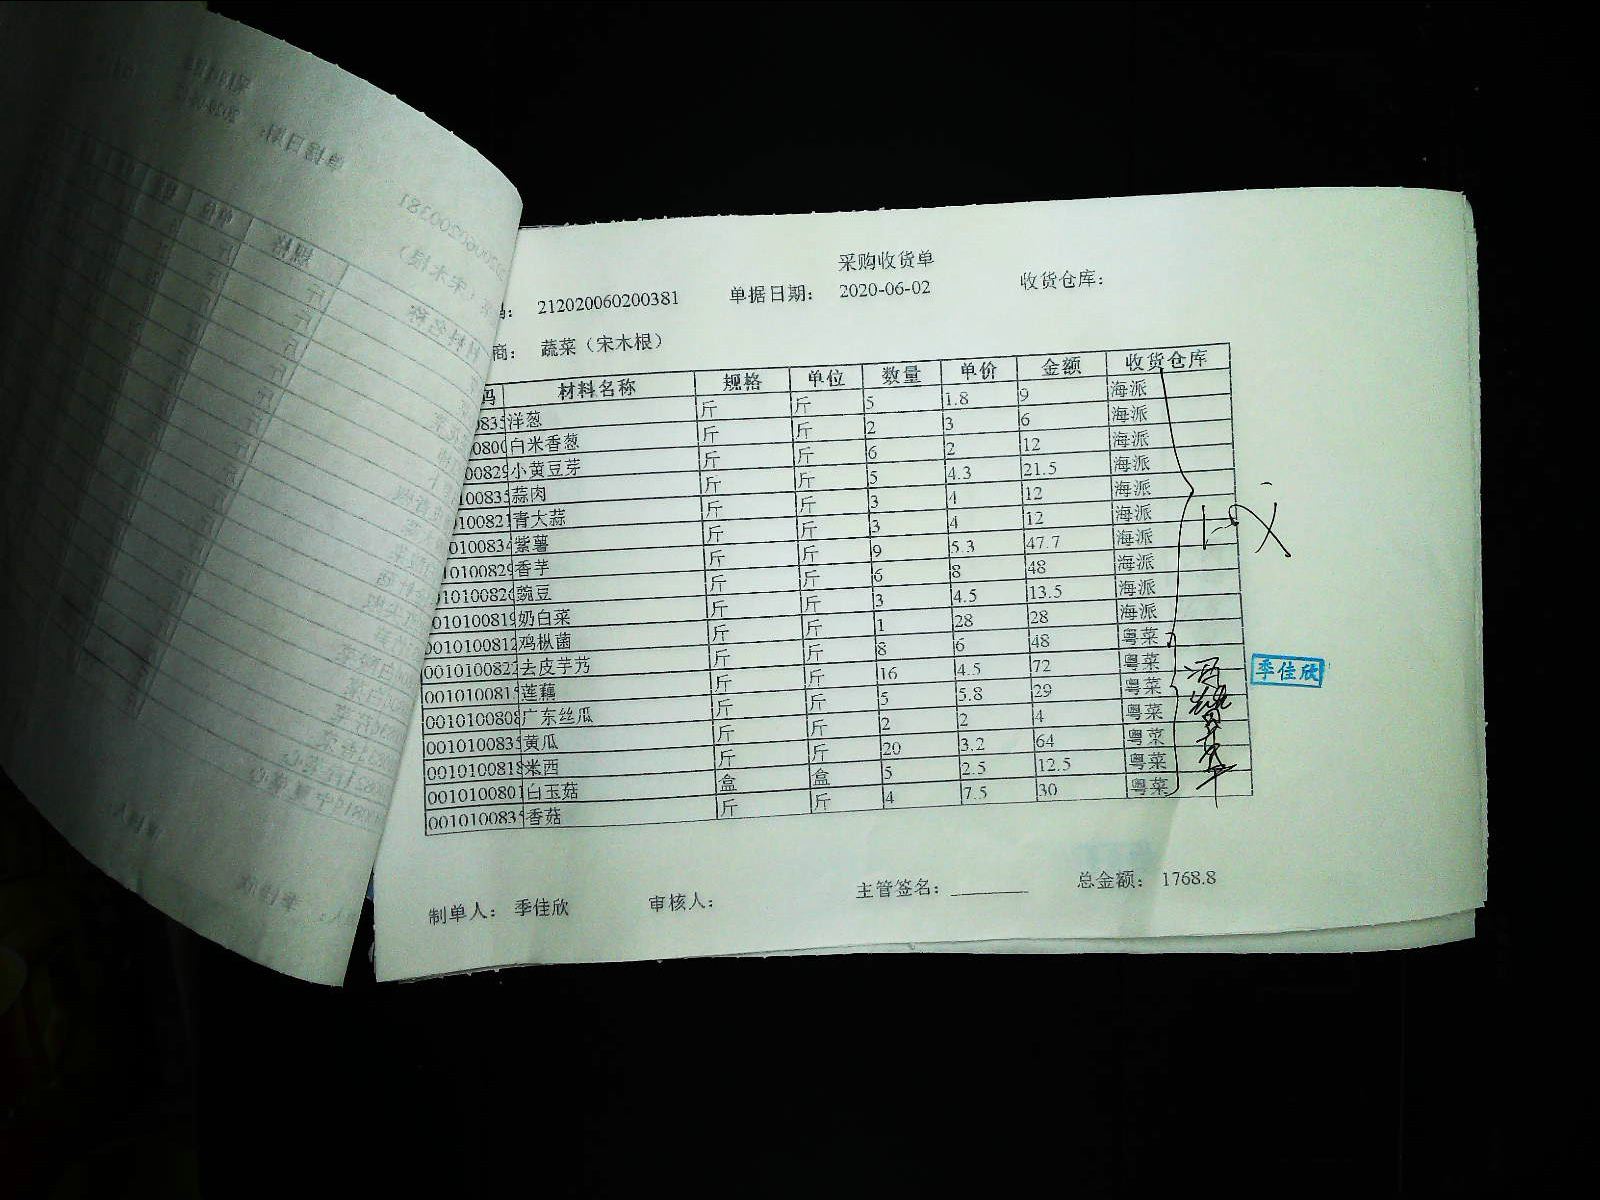 采购收货单
码： 212020060200381 单据日期： 2020-06-02 收货仓库：
商： 蔬菜（宋木根）
码 材料名称 规格 单位 数量 单价 金额 收货仓库
0835 洋葱 斤 斤 5 1.8 9 海派
0800 白米香葱 斤 斤 2 3 6 海派
00829 小黄豆芽 斤 斤 6 2 12 海派
100835 蒜肉 斤 斤 5 4.3 21.5 海派
0100821 青大蒜 斤 斤 3 4 12 海派
0100834 紫薯 斤 斤 3 4 12 海派
10100829 香芋 斤 斤 9 5.3 47.7 海派
10100826 豌豆 斤 斤 6 8 48 海派
010100819 奶白菜 斤 斤 3 4.5 13.5 海派
0010100812 鸡枞菌 斤 斤 1 28 28 海派
0010100822 去皮芋艿 斤 斤 8 6 48 粤菜
0010100815 莲藕 斤 斤 16 4.5 72 粤菜
0010100808 广东丝瓜 斤 斤 5 5.8 29 粤菜
0010100835 黄瓜 斤 斤 2 2 4 粤菜
0010100818 米西 斤 斤 20 3.2 64 粤菜
0010100801 白玉菇 盒 盒 5 2.5 12.5 粤菜
0010100835 香菇 斤 斤 4 7.5 30 粤菜
季佳欣
制单人： 季佳欣 审核人： 主管签名： 总金额： 1768.8